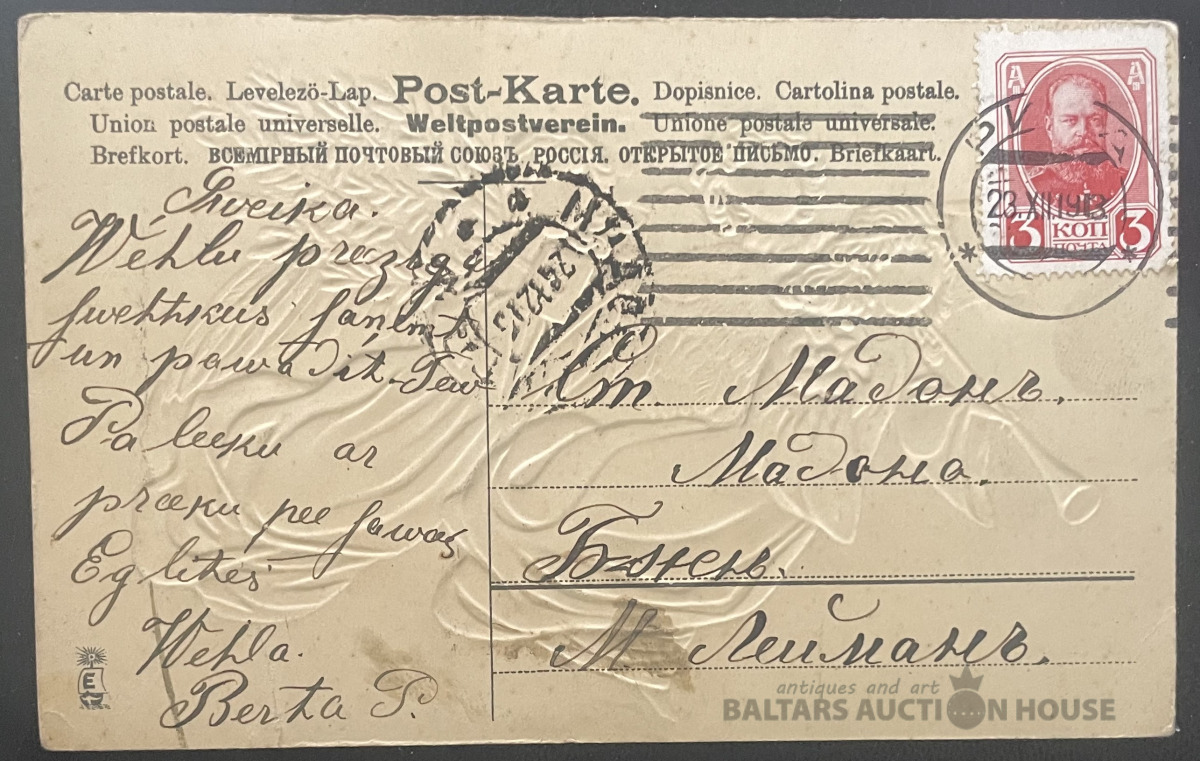 Carte postale. Levelezö-Lap. Post-Karte. Dopisnice. Cartolina postale.
Union postale universelle. Weltpostverein. Unione postale universale.
Brefkort. ВСЕМІРНЫЙ ПОЧТОВЫЙ СОЮЗЪ. РОССІЯ. ОТКРЫТОЕ ПИСЬМО. Briefkaart.
23.XII.1913
3 КОП 3
ПОЧТА
Sweika.
Wehlu preezigą
swehtkus saņemt
un pawadit. Tew
Paleeku ar
preeku pee sawas
Eglites
Wehla.
Berta P.
Ст. Мадонъ.
Мадона.
Б-жен.
М Лейманъ.
E
antiques and art
BALTARS AUCTION HOUSE